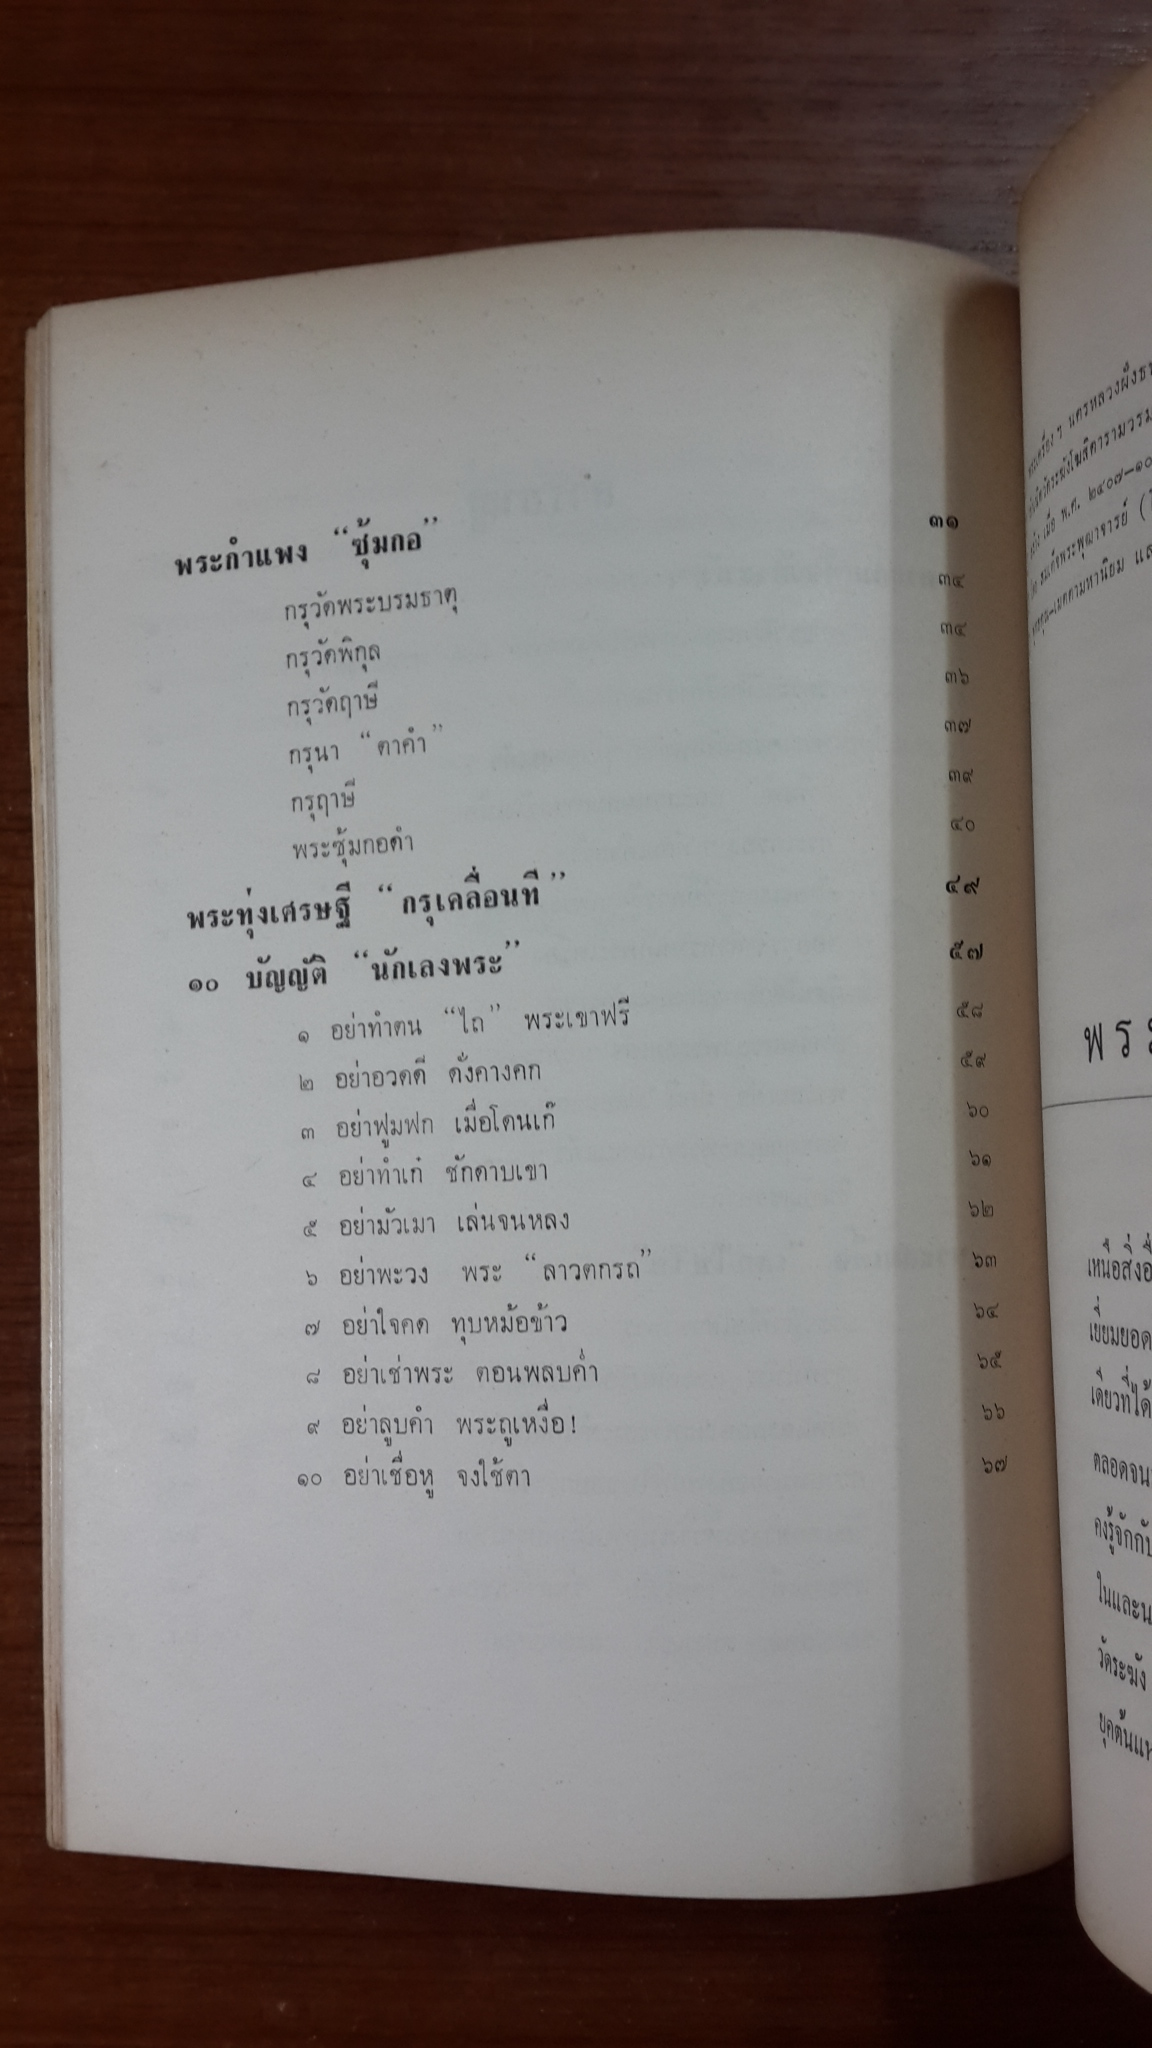 พระกำแพง “ซุ้มกอ” ๓๑
กรุวัดพระบรมธาตุ ๓๔
กรุวัดพิกุล ๓๔
กรุวัดฤาษี ๓๖
กรุนา “ตาคำ” ๓๗
กรุฤาษี ๓๙
พระซุ้มกอดำ ๔๐
พระทุ่งเศรษฐี “กรุเคลื่อนที่” ๔๙
๑๐ บัญญัติ “นักเลงพระ” ๕๗
๑ อย่าทำตน “ไถ” พระเขาฟรี ๕๘
๒ อย่าอวดดี ดั่งคางคก ๕๙
๓ อย่าฟูมฟก เมื่อโดนเก๊ ๖๐
๔ อย่าทำเก๋ ชักดาบเขา ๖๑
๕ อย่ามัวเมา เล่นจนหลง ๖๒
๖ อย่าพะวง พระ “ลาวตกรถ” ๖๓
๗ อย่าใจคด ทุบหม้อข้าว ๖๔
๘ อย่าเช่าพระ ตอนพลบค่ำ ๖๕
๙ อย่าลูบคำ พระถูเหงื่อ! ๖๖
๑๐ อย่าเชื่อหู จงใช้ตา ๖๗
พระเครื่องฯ นครหลวงฝั่งธน
เมื่อ พ.ศ. ๒๔๐๗–๑๐
สมเด็จพระพุฒาจารย์ (
เมตตามหานิยม
พระ
เหนือสิ่งอื่
เยี่ยมยอด
เดียวที่ได้
ตลอดจน
คงรู้จักกับ
ในและน
วัดระฆัง
ยุคต้นแห